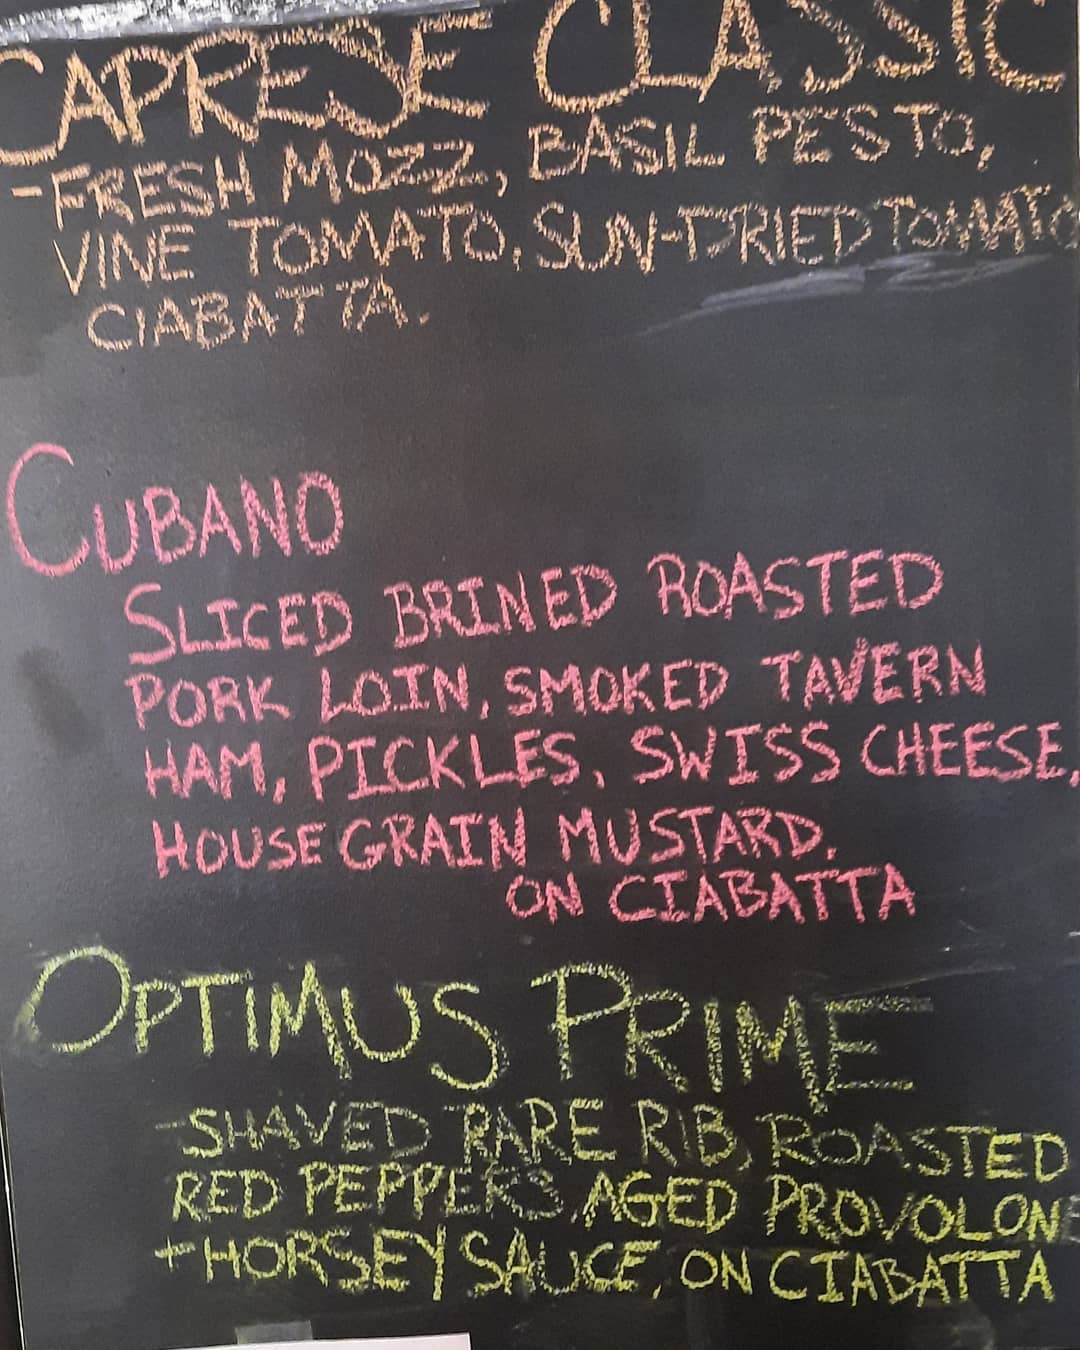 CAPRESE CLASSIC
-FRESH MOZZ, BASIL PESTO,
VINE TOMATO, SUN-DRIED TOMATO
CIABATTA.
CUBANO
SLICED BRINED ROASTED
PORK LOIN, SMOKED TAVERN
HAM, PICKLES, SWISS CHEESE,
HOUSE GRAIN MUSTARD.
ON CIABATTA
OPTIMUS PRIME
-SHAVED RARE RIB, ROASTED
RED PEPPERS, AGED PROVOLONE
+ HORSEY SAUCE, ON CIABATTA